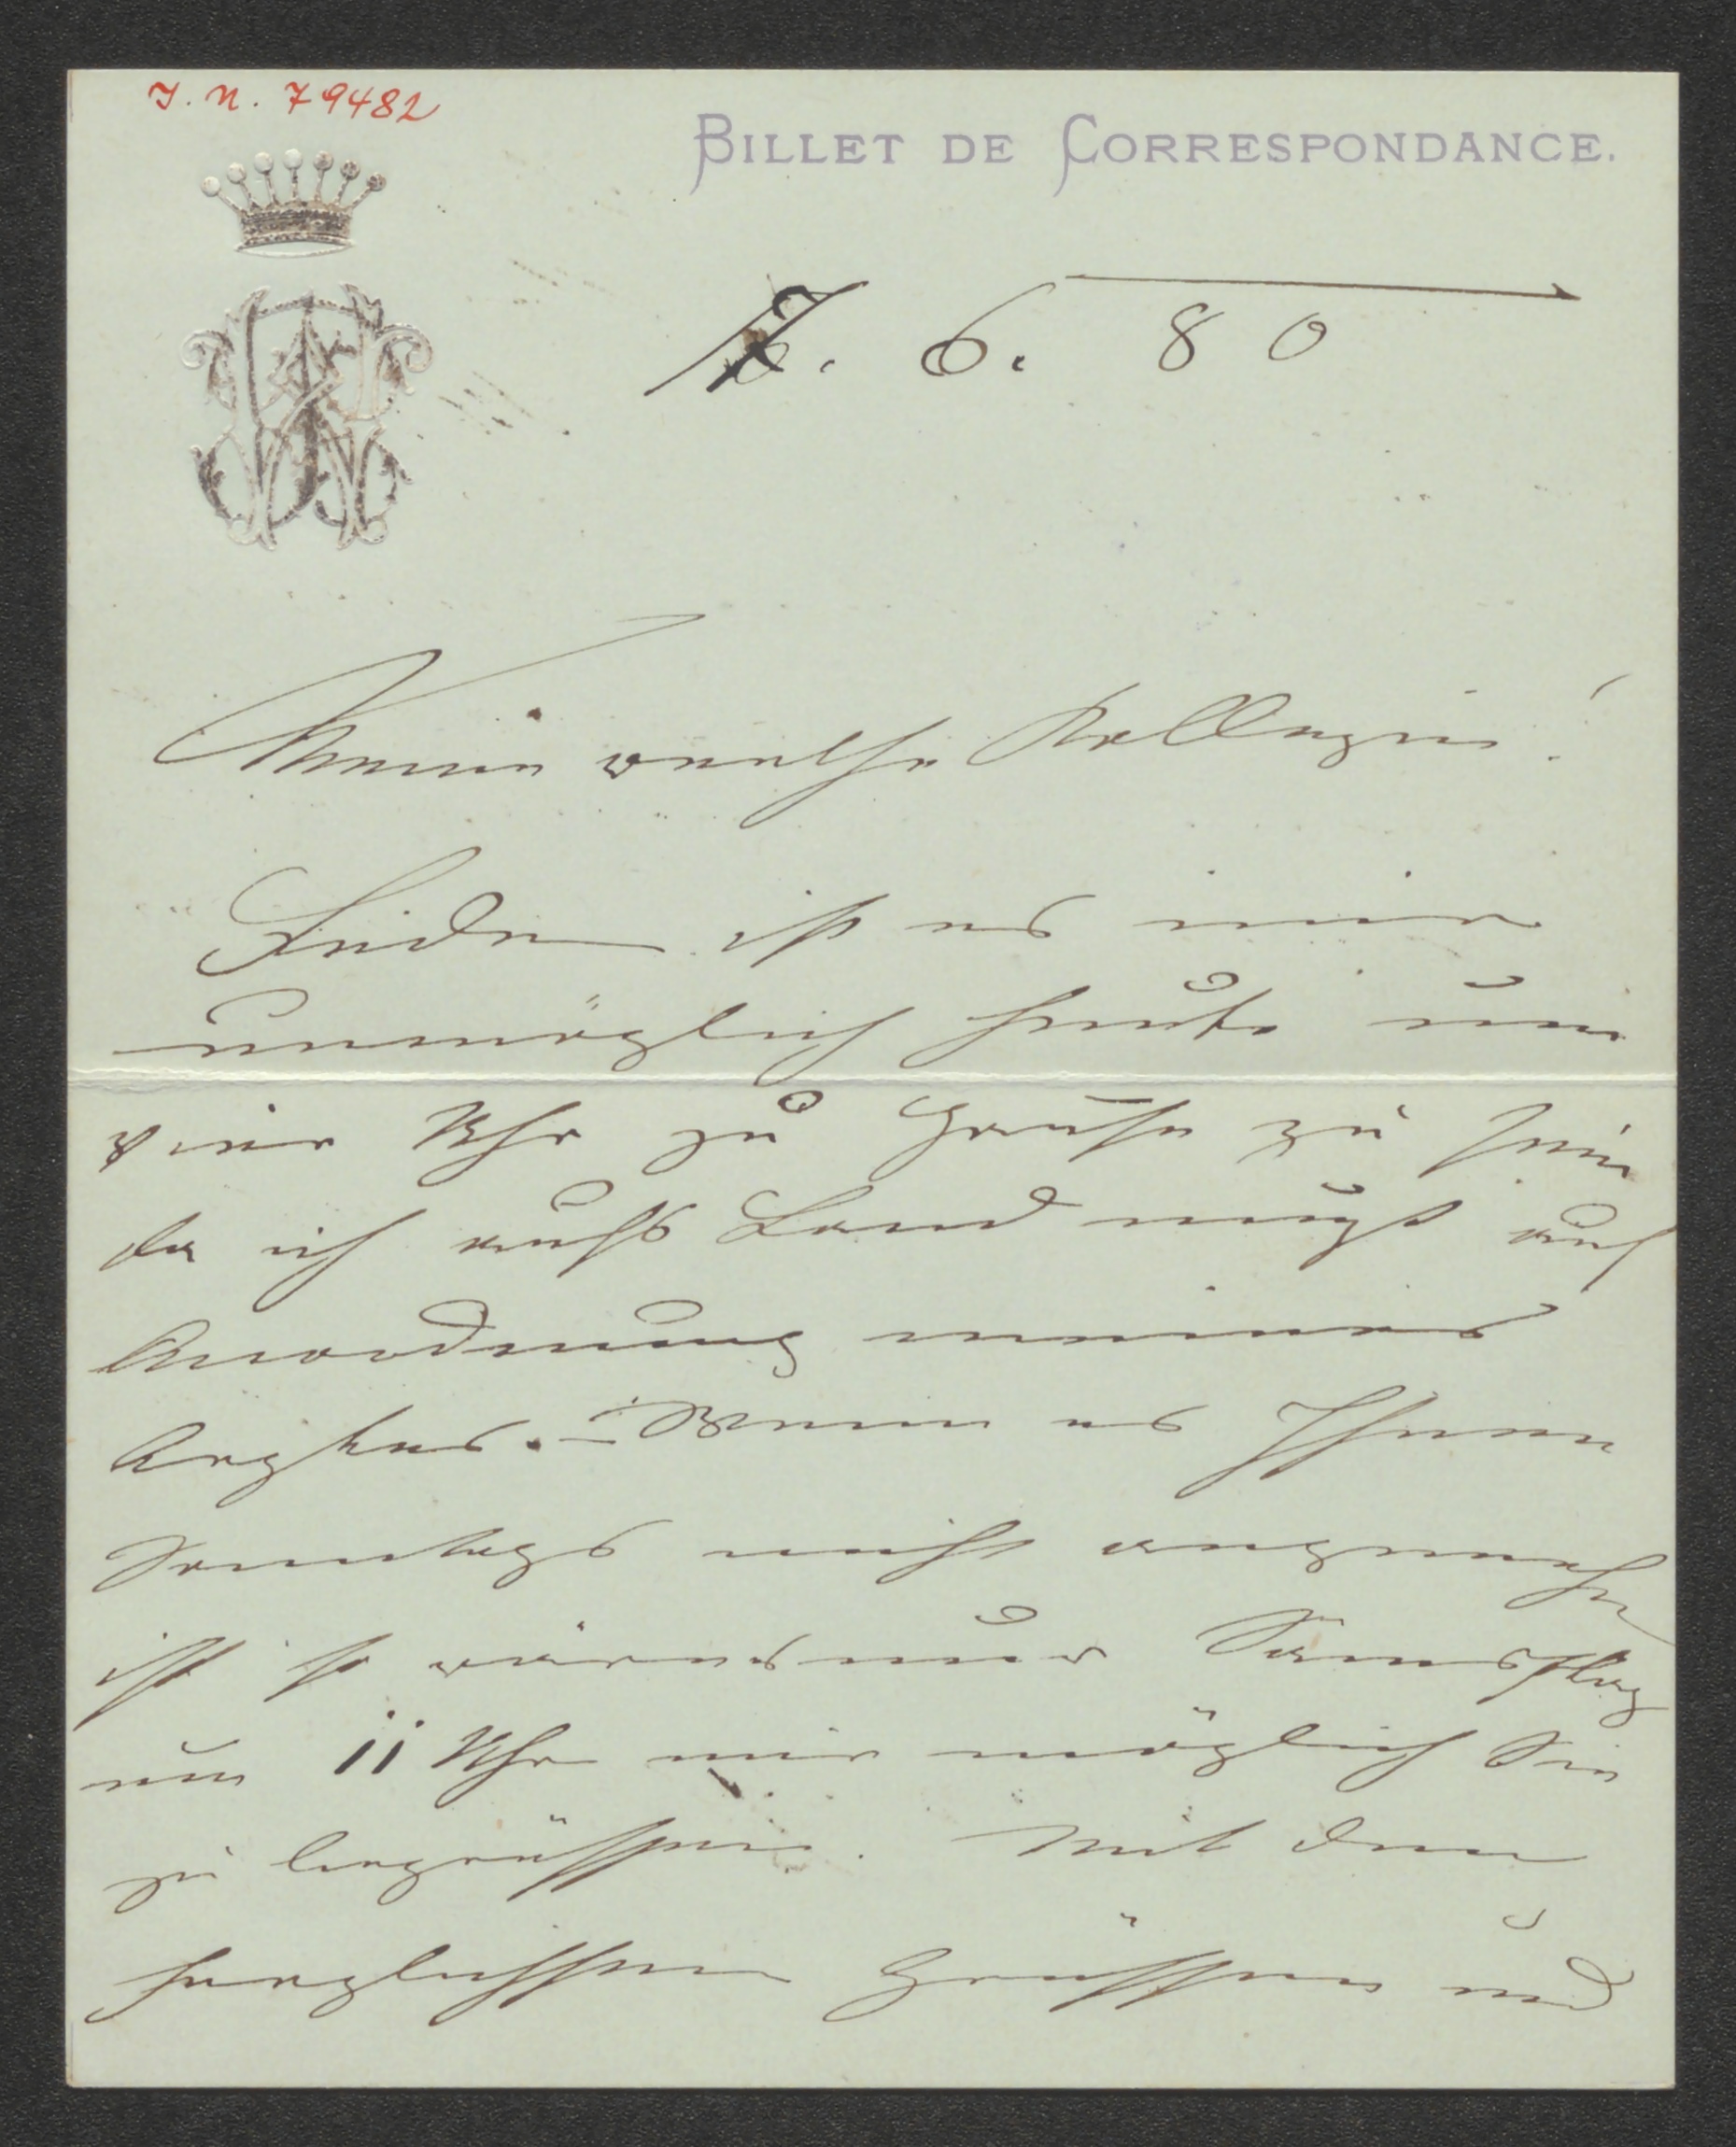 J. N. 79482
BILLET DE CORRESPONDANCE.
7. 6. 80
Meine werthe Kollegin!
Leider ist es mir
unmöglich heute um
vier Uhr zu Hause zu sein
da ich aufs Land muß auf
Anordnung meines
Arztes. – Wenn es Ihnen
Sonntags nicht angenehm
ist so wäre es nur Samstag
um 11 Uhr mir möglich Sie
zu begrüssen. Mit den
herzlichsten Grüssen und